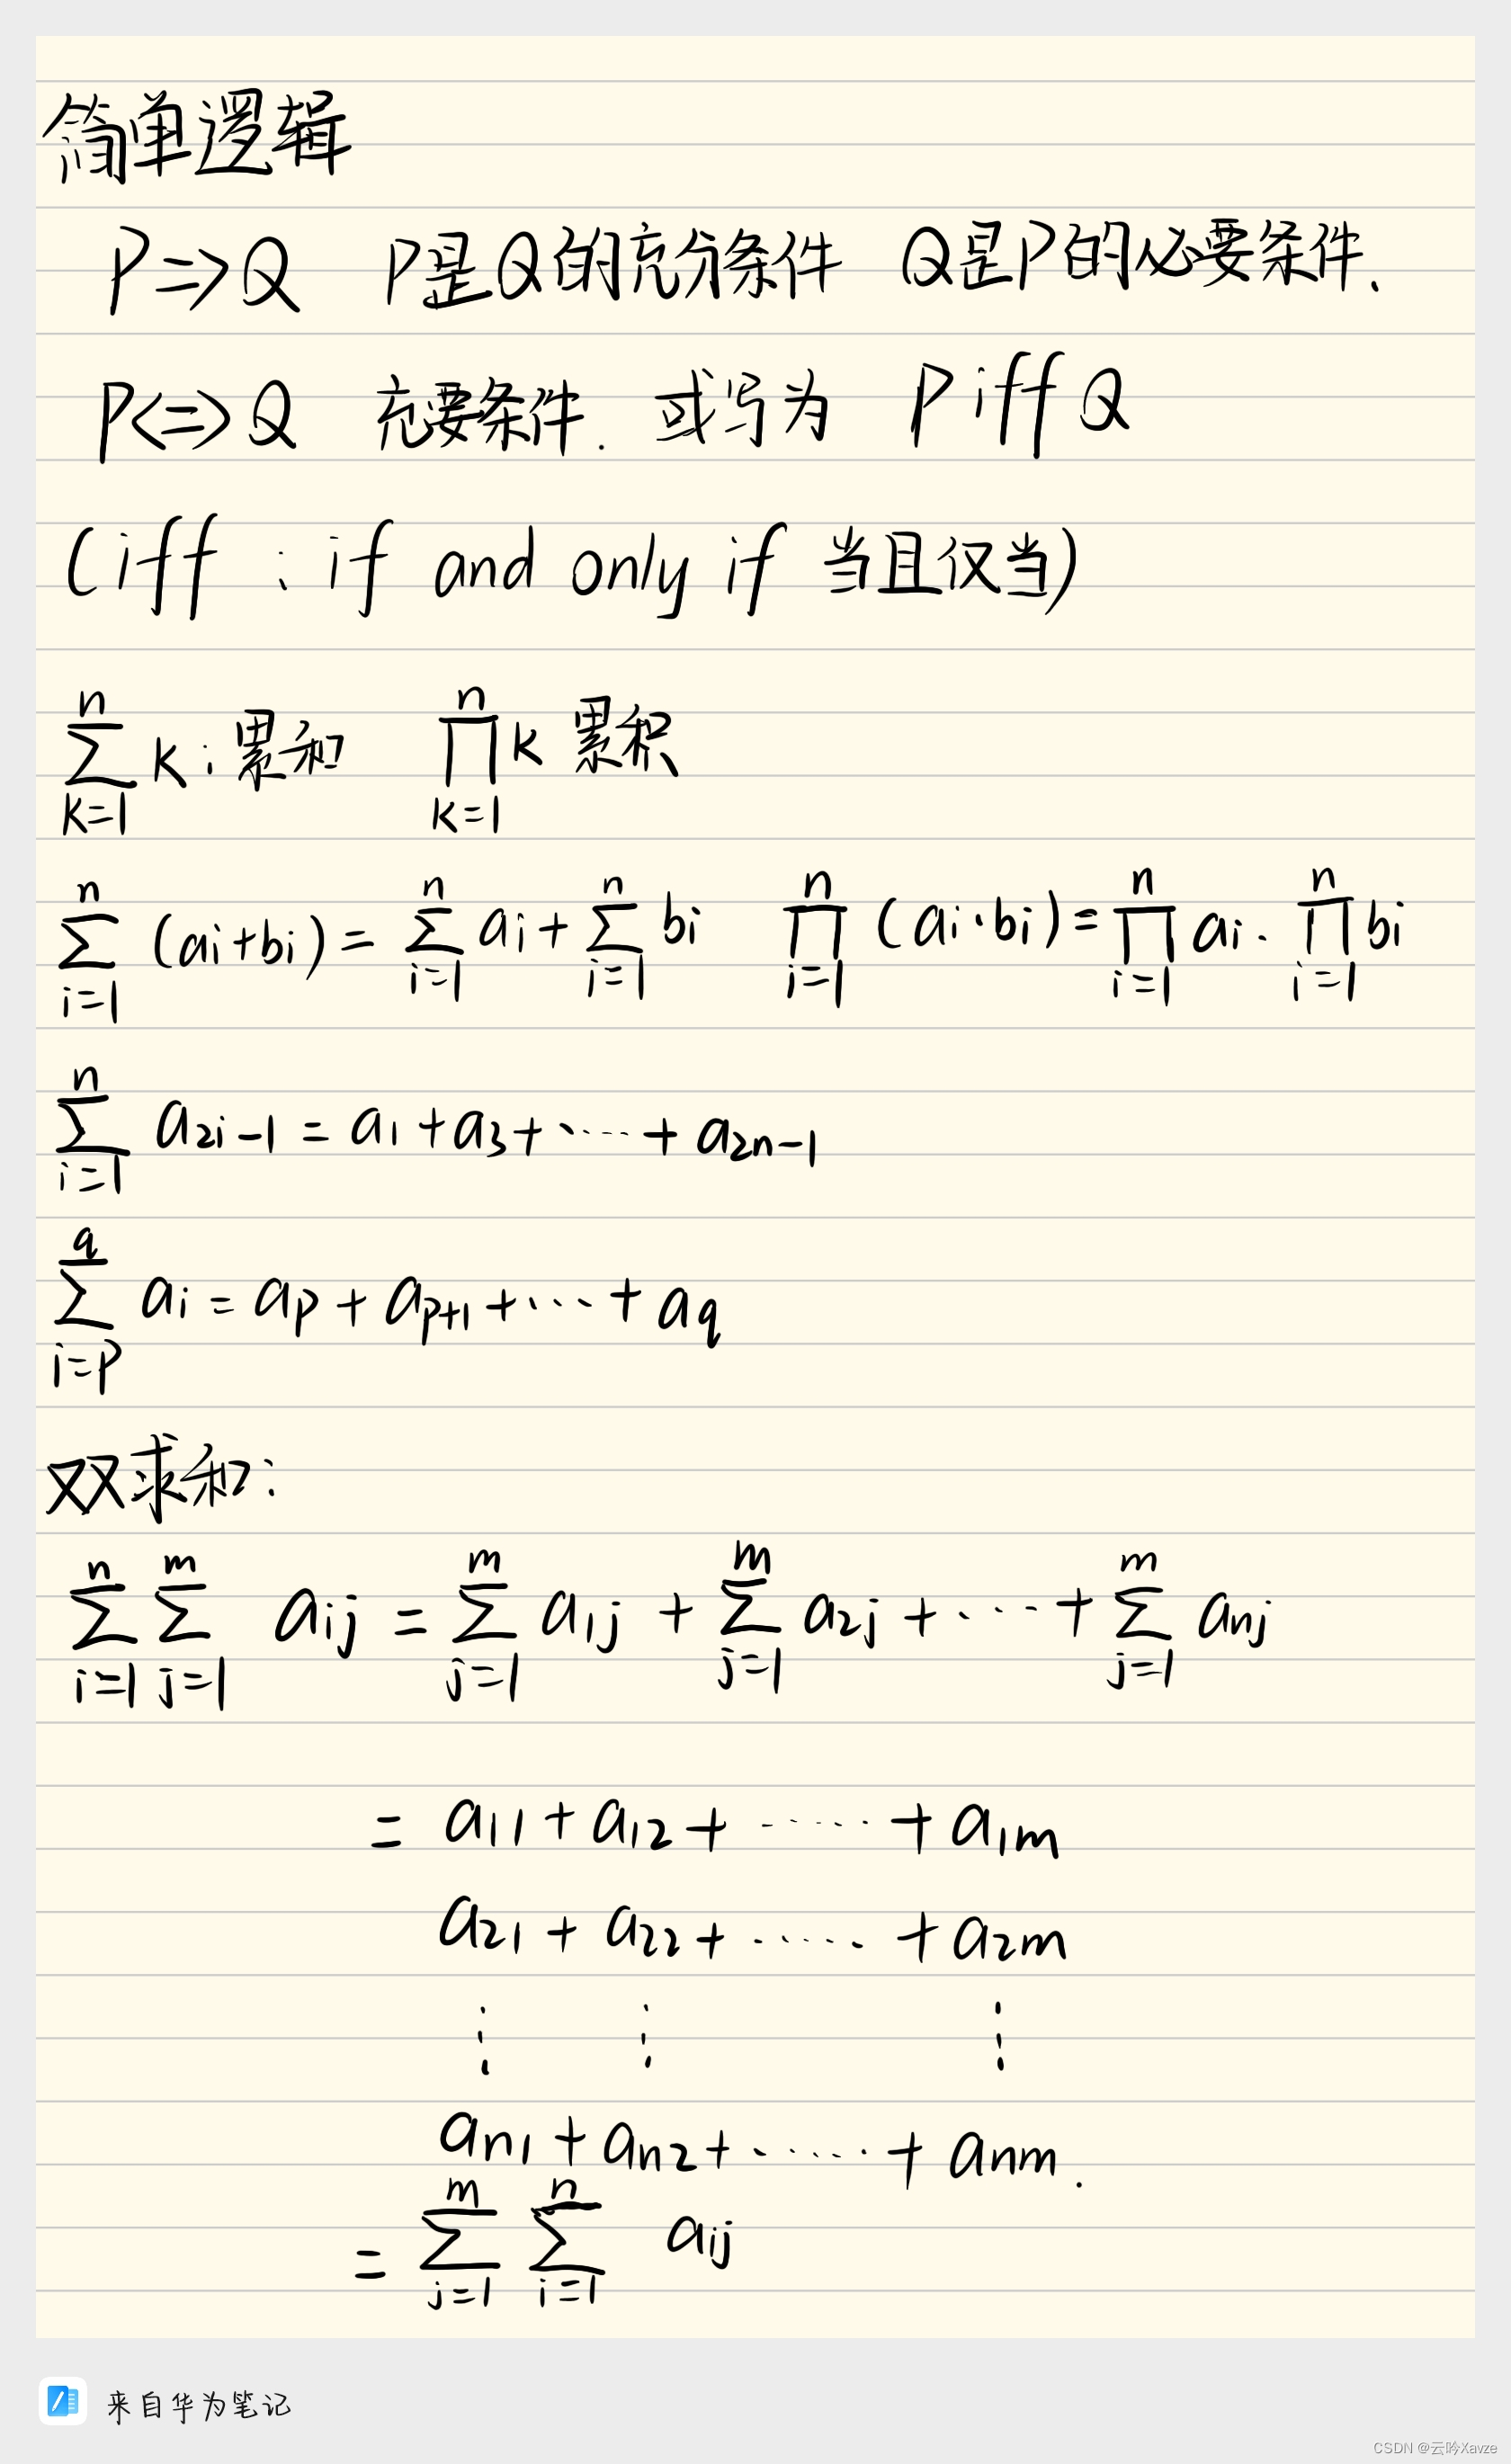 简单逻辑
P⇒Q P是Q的充分条件 Q是P的必要条件.
P<=>Q 充要条件. 或写为 P iff Q
(iff : if and only if 当且仅当)
\sum_{k=1}^{n} k : 累和 \prod_{k=1}^{n} k 累积
\sum_{i=1}^{n} (a_i+b_i) = \sum_{i=1}^{n} a_i + \sum_{i=1}^{n} b_i \prod_{i=1}^{n} (a_i·b_i) = \prod_{i=1}^{n} a_i · \prod_{i=1}^{n} b_i
\sum_{i=1}^{n} a_{2i-1} = a_1 + a_3 + ...... + a_{2n-1}
\sum_{i=p}^{q} a_i = a_p + a_{p+1} + ... + a_q
双求和:
\sum_{i=1}^{n} \sum_{j=1}^{m} a_{ij} = \sum_{j=1}^{m} a_{1j} + \sum_{j=1}^{m} a_{2j} + ... + \sum_{j=1}^{m} a_{nj}
= a_{11} + a_{12} + ...... + a_{1m}
a_{21} + a_{22} + ...... + a_{2m}
⋮ ⋮ ⋮
a_{n1} + a_{n2} + ...... + a_{nm}.
= \sum_{j=1}^{m} \sum_{i=1}^{n} a_{ij}
来自华为笔记
CSDN @云吟Xavze